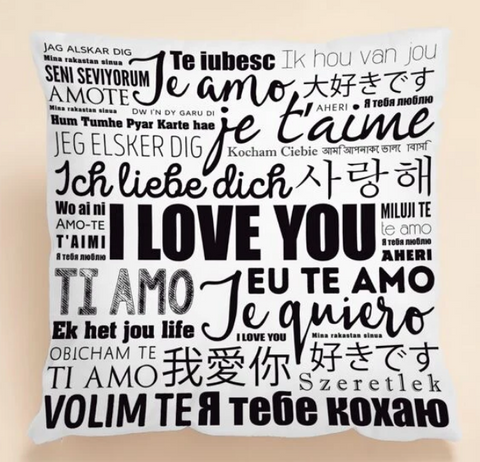 JAG ALSKAR DIG
Te iubesc
Ik hou van jou
Mina rakastan sinua
SENI SEVIYORUM
Te amo
大好きです
AMOTE
Mina rakastan sinua
DW I'N DY GARU DI
AHERI
Я тебя люблю
Hum Tumhe Pyar Karte hae
je t'aime
JEG ELSKER DIG
Kocham Ciebie
Ich liebe dich
사랑해
Wo ai ni
I LOVE YOU
MILUJI TE
AMO-TE
te amo
T'AIMI
Я тебя люблю
Я тебя люблю
AHERI
TI AMO
EU TE AMO
Te quiero
Ek het jou life
I LOVE YOU
Mina rakastan sinua
OBICHAM TE
我愛你
好きです
TI AMO
Szeretlek
VOLIM TE
Я тебе кохаю